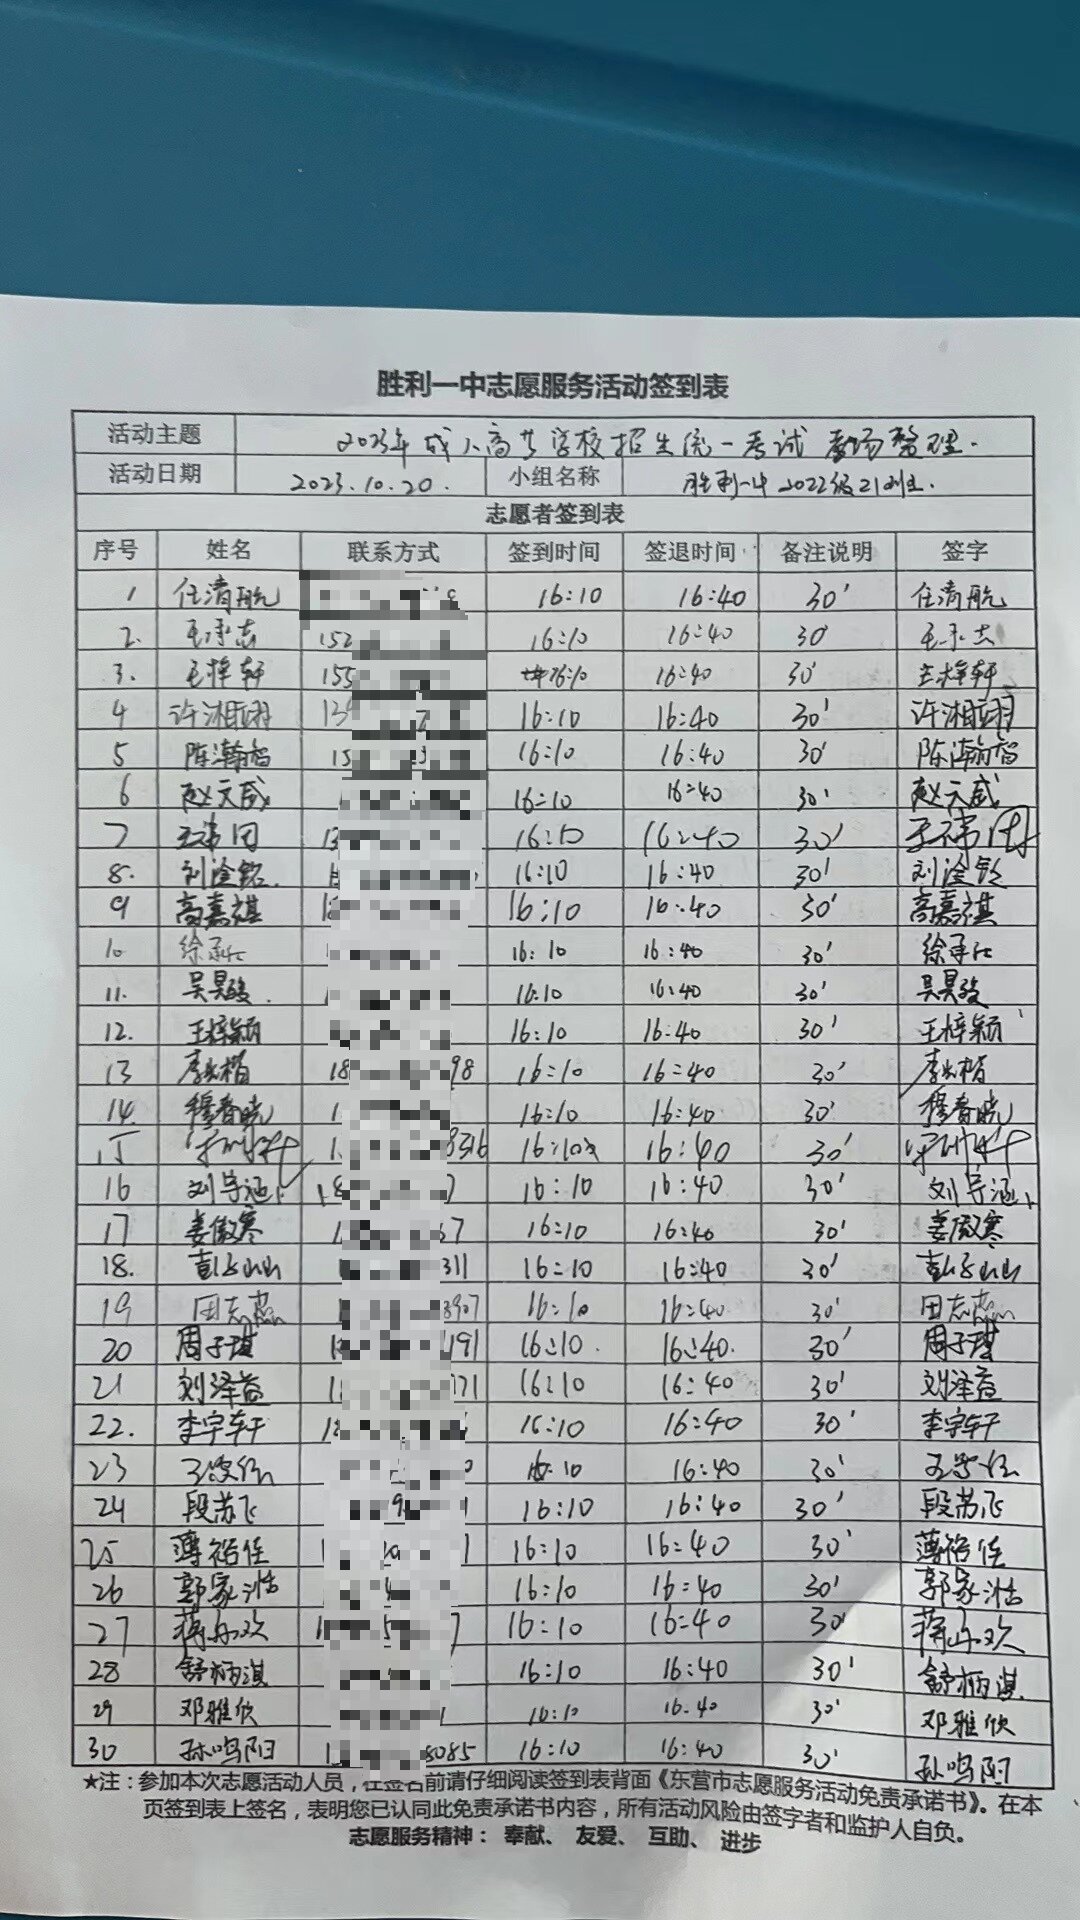 胜利一中志愿服务活动签到表
活动主题 2023年成人高等学校招生统一考试 考场整理.
活动日期 2023.10.20. 小组名称 胜利一中 2022级21班.
志愿者签到表
序号 姓名 联系方式 签到时间 签退时间 备注说明 签字
1 任清航 16:10 16:40 30' 任清航
2. 毛承志 152 16:10 16:40 30' 毛承志
3. 王梓轩 155 16:10 16:40 30' 王梓轩
4 许湘翊 13 16:10 16:40 30' 许湘翊
5 陈瀚智 15 16:10 16:40 30' 陈瀚智
6 赵天威 16:10 16:40 30' 赵天威
7 13 16:10 16:40 30'
8. 刘淦铭 16:10 16:40 30' 刘淦铭
9 高嘉祺 16:10 16:40 30' 高嘉祺
10 徐承仁 16:10 16:40 30' 徐承仁
11. 吴昊骏. 16:10 16:40 30' 吴昊骏
12. 王梓颖 16:10 16:40 30' 王梓颖
13 李 楷 18 98 16:10 16:40 30' 李 楷
14 穆春晓 1 16:10 16:40 30' 穆春晓
15 1 8316 16:10 16:40 30'
16 刘宇涵 18 7 16:10 16:40 30' 刘宇涵
17 姜傲寒 1 67 16:10 16:40 30' 姜傲寒
18. 311 16:10 16:40 30'
19 田志燕 1 3907 16:10 16:40 30' 田志燕
20 周子琪 191 16:10. 16:40. 30' 周子琪
21 刘泽益 1 71 16:10 16:40 30' 刘泽益
22. 李宇轩 18 16:10 16:40 30' 李宇轩
23 16:10 16:40 30'
24 段苏飞 9 1 16:10 16:40 30' 段苏飞
25 薄裕任 1 1 16:10 16:40 30' 薄裕任
26 郭家浩 16:10 16:40 30' 郭家浩
27 蒋 欢 1 5 7 16:10 16:40 30' 蒋 欢
28 舒柄淇 16:10 16:40 30' 舒柄淇
29 邓雅欣 1 16:10 16:40 30' 邓雅欣
30 孙鸣阳 1 8085 16:10 16:40 30' 孙鸣阳
★注：参加本次志愿活动人员，在签名前请仔细阅读签到表背面《东营市志愿服务活动免责承诺书》。在本
页签到表上签名，表明您已认同此免责承诺书内容，所有活动风险由签字者和监护人自负。
志愿服务精神： 奉献、 友爱、 互助、 进步